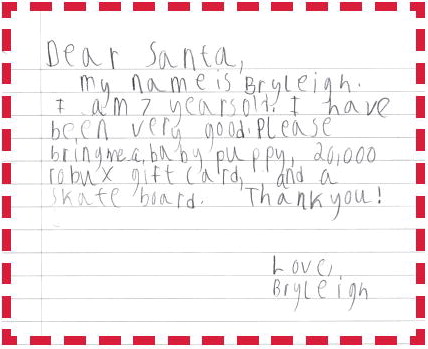 Dear Santa,
my name is Bryleigh.
I am 7 years old. I have
been very good. Please
bring me a baby puppy, 20,000
robux gift card, and a
skate board. Thank you!
Love,
Bryleigh